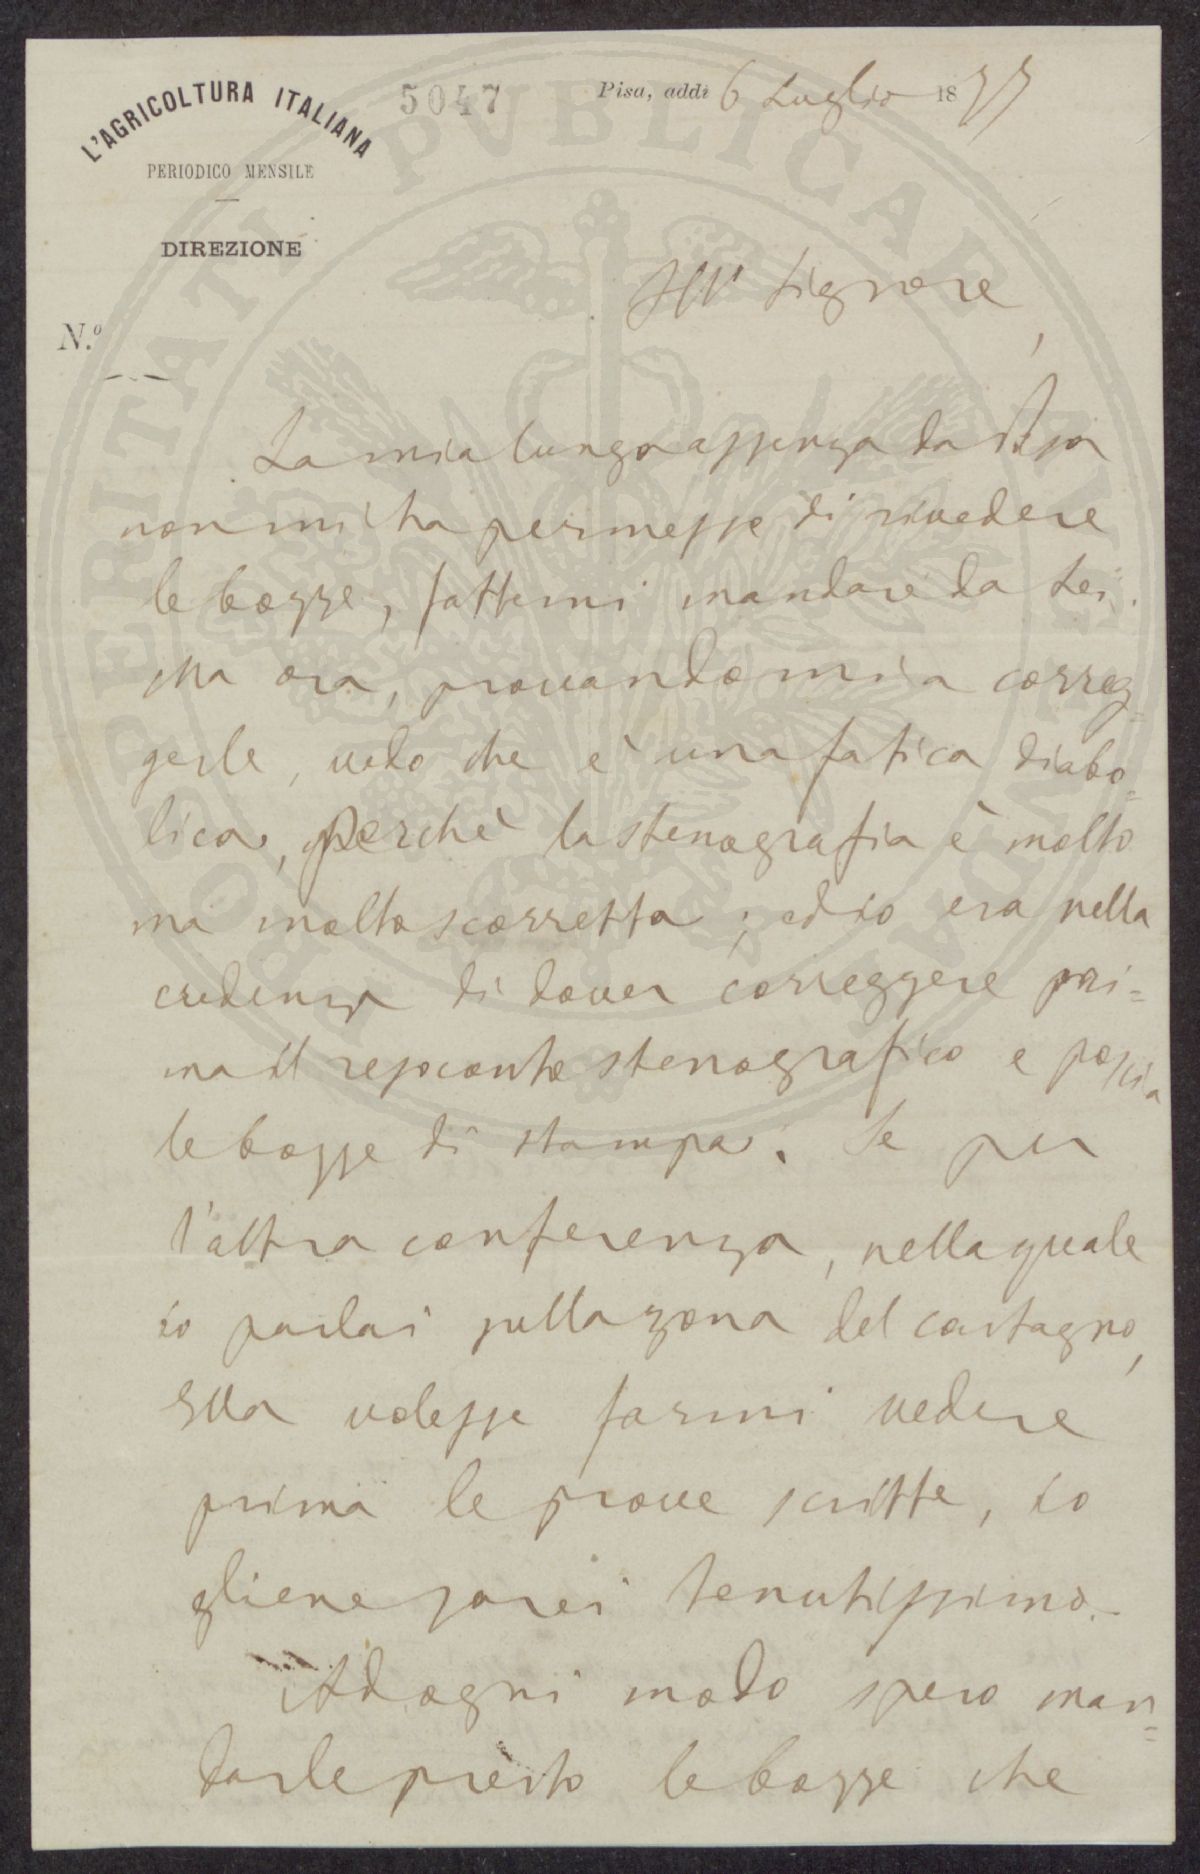 L'AGRICOLTURA ITALIANA
PERIODICO MENSILE
DIREZIONE
N.º
5047
Pisa, addì 6 Luglio 1877
Illº Signore,
La mia lunga assenza da Pisa
non mi ha permesso di rivedere
le bozze, fattemi mandare da Lei.
Ma ora, provandomi a correg-
gerle, vedo che è una fatica diabo-
lica, Perchè la stenografia è molto
ma molto scorretta; ed io era nella
credenza di dover correggere pri=
ma il resoconto stenografico e poscia
le bozze di stampa. Se per
l'altra conferenza, nella quale
io parlai sulla zona del castagno,
Ella volesse farmi vedere
prima le prove scritte, io
gliene sarei tenutissimo.
Ad ogni modo spero man=
darle presto le bozze che
PROSPERITATI PVBLICAE AVGENDAE